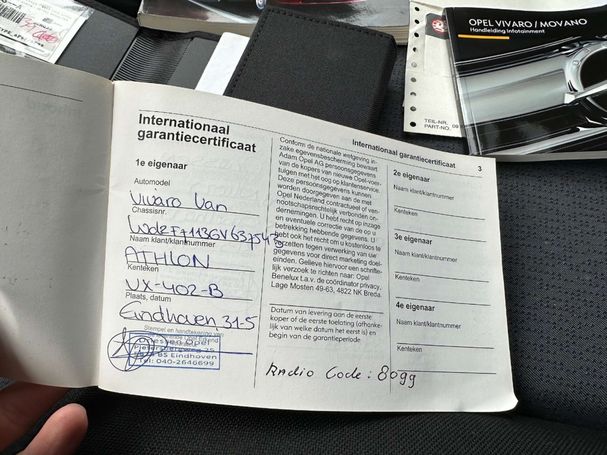 OPEL VIVARO / MOVANO
Handleiding Infotainment
TEIL-NR.
PART-NO.
Internationaal garantiecertificaat
3
Internationaal
garantiecertificaat
1e eigenaar
Automodel
Vivaro Van
Chassisnr.
Naam klant/klantnummer
ATHLON
Kenteken
VX-402-B
Plaats, datum
Eindhoven 31-5
Stempel en handtekening van
Driessen Opel
Eindhoven
Tel: 040-2646699
Conform de nationale wetgeving in-
zake egevensbescherming bewaart
Adam Opel AG persoonsgegevens
van de kopers van nieuwe Opel-voer-
tuigen met het oog op klantenservice.
Deze persoonsgegevens kunnen
worden doorgegeven aan de met
Opel Nederland contractueel of ven-
nootschapsrechtelijk verbonden on-
dernemingen. U hebt recht op inzage
en eventuele correctie van de op u
betrekking hebbende gegevens. U
hebt ook het recht om u kosteloos te
verzetten tegen verwerking van uw
gegevens voor direct marketing doel-
einden. Gelieve hiervoor een schrifte-
lijk verzoek te richten naar: Opel
Benelux t.a.v. de coördinator privacy,
Lage Mosten 49-63, 4822 NK Breda.
Datum van levering aan de eerste
koper of de eerste toelating (afhanke-
lijk van welke datum het eerst is) en
begin van de garantieperiode
Radio Code: 8099
2e eigenaar
Naam klant/klantnummer
Kenteken
3e eigenaar
Naam klant/klantnummer
Kenteken
4e eigenaar
Naam klant/klantnummer
Kenteken